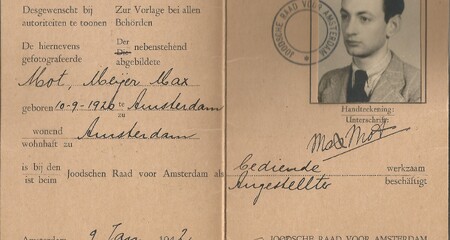 Desgewenscht bij
autoriteiten te toonen
Zur Vorlage bei allen
Behörden
De hiernevens
gefotografeerde
Der
Die nebenstehend
abgebildete
Mot, Meijer Max
geboren 10-9-1926 te
zu Amsterdam
wonend
wohnhaft zu Amsterdam
is bij den
ist beim Joodschen Raad voor Amsterdam als
JOODSCHE RAAD VOOR AMSTERDAM
Handteekening:
Unterschrift:
M de Mot
Bediende
Angestellter
werkzaam
beschäftigt
Amsterdam 9 1942
JOODSCHE RAAD VOOR AMSTERDAM